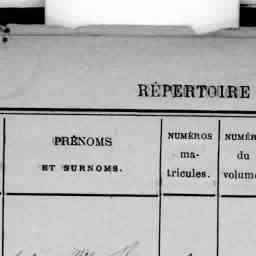 RÉPERTOIRE
PRÉNOMS
ET SURNOMS.
NUMÉROS
ma-
tricules.
NUMÉR
du
volume